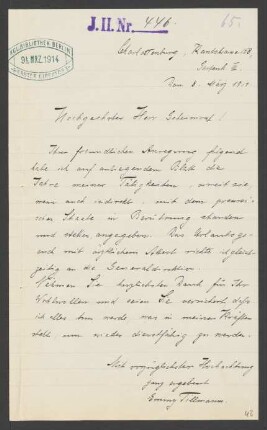 J.H. Nr. 446.
65.
KGL. BIBLIOTHEK BERLIN
9. MRZ. 1914
Charlottenburg, Kantstrasse 158,
Gartenh. II.
Den 8. März 1914
Hochgeehrter Herr Geheimrat!
Ihrer freundlichen Anregung folgend
habe ich auf anliegendem Blatt die
Jahre meiner Tätigkeiten, soweit sie,
wenn auch indirekt, mit dem preussi-
schen Staate in Berührung standen
und stehen, angegeben. Das Urlaubsge-
such mit ärztlichem Attest richte ich gleich-
zeitig an die Generaldirektion.
Nehmen Sie herzlichsten Dank für Ihr
Wohlwollen und seien Sie versichert, dass
ich alles tun werde was in meinen Kräften
steht um wieder dienstfähig zu werden.
Mit vorzüglichster Hochachtung
ganz ergebenst
Emmy Tillmann.
48